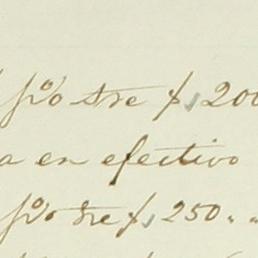 p%o stre $ 200
a en efectivo
p%o stre $ 250 " "